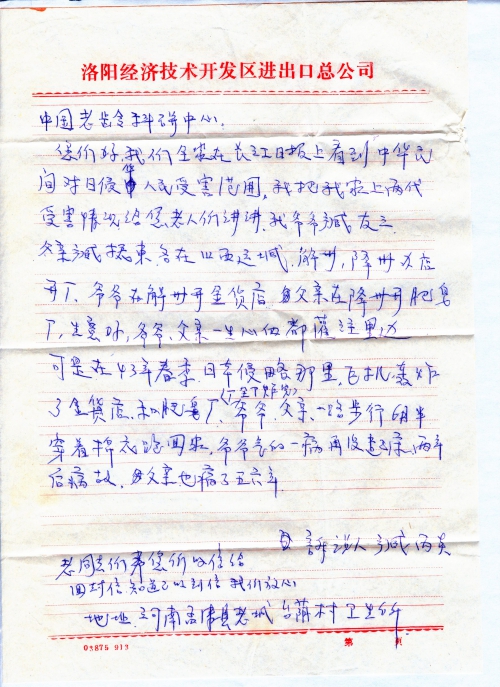 洛阳经济技术开发区进出口总公司
中国老龄科研中心.
您们好,我们全家在长江日报上看到中华民
间对日侵华人民受害范围,我把我家上两代
受害情况给您老人们讲讲,我爷爷戚友三
父亲戚振东各在山西运城,解州,降州以店
开厂,爷爷在解州开金货店,父亲在降州开肥皂
厂,生意好,爷爷、父亲一生心血都灌注里边
可是在43年春季,日本侵略那里,飞机轰炸
了金货店,和肥皂厂,爷爷、父亲一路步行6月半
穿着棉衣跑回来,爷爷气的一病再没起床,两年
后病故,父亲也病了五六年.
诉说人 戚
老同志们希您们收信给
回封信知道已收到信我们放心
地址 河南孟津县老城 村卫生所
03875 913
第 页